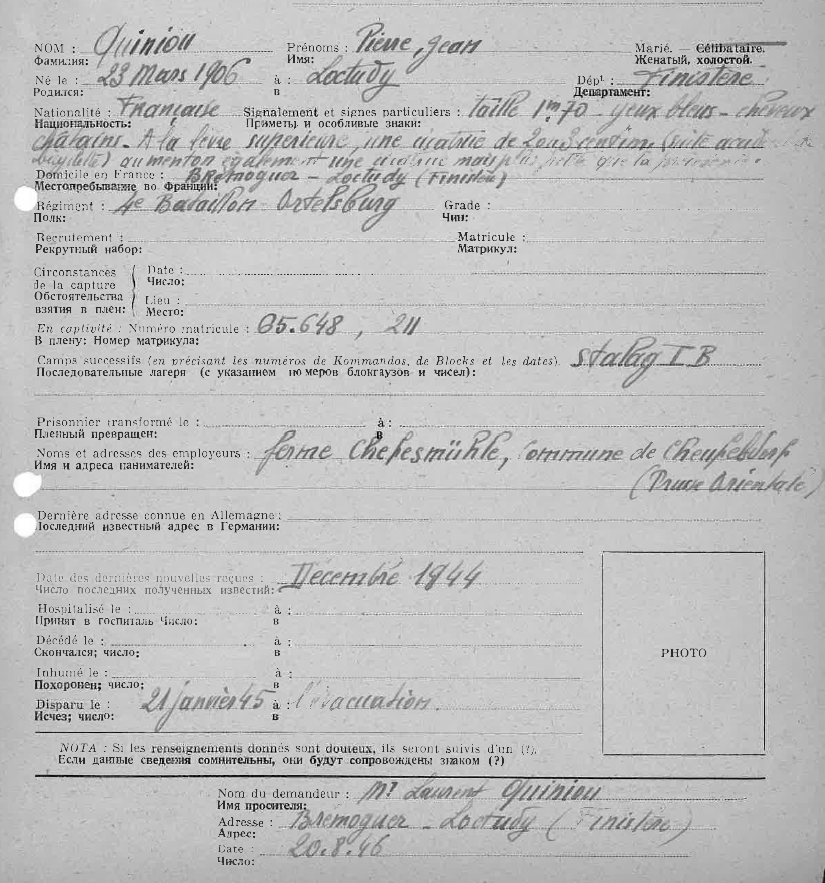 NOM : Quiniou Prénoms : Pierre, Jean Marié. — Célibataire.
Фамилия: Имя: Женатый, холостой.
Né le : 23 Mars 1906 à Loctudy Dépt : Finistère
Родился: в Департамент:
Nationalité : Française Signalement et signes particuliers : taille 1m70 - yeux bleus - cheveux
Национальность: Приметы и особые знаки:
châtains. A la lèvre supérieure, une cicatrice de 2 ou 3 centim (suite
au menton également une cicatrice mais plus petite que la
Domicile en France : Bremoguer - Loctudy (Finistère)
Местопребывание во Франции:
Régiment : 4e Bataillon Ortelsburg Grade :
Полк: Чин:
Recrutement : Matricule :
Рекрутный набор: Матрикул:
Circonstances de la capture Date :
Обстоятельства взятия в плен: Число:
Lieu :
Место:
En captivité : Numéro matricule : 65.648, 211
В плену: Номер матрикула:
Camps successifs (en précisant les numéros de Kommandos, de Blocks et les dates). Stalag I B
Последовательные лагеря (с указанием номеров блокгаузов и чисел):
Prisonnier transformé le : à :
Пленный превращен: в
Noms et adresses des employeurs : ferme Chefesmühle, Commune de
Имя и адреса нанимателей: (Prusse Orientale)
Dernière adresse connue en Allemagne :
Последний известный адрес в Германии:
Date des dernières nouvelles reçues : Décembre 1944
Число последних полученных известий:
Hospitalisé le : à :
Принят в госпиталь Число: в
Décédé le : à :
Скончался; число: в
PHOTO
Inhumé le : à :
Похоронен; число: в
Disparu le : 21 janvier 45 à : l'évacuation.
Исчез; число: в
NOTA : Si les renseignements donnés sont douteux, ils seront suivis d'un (?).
Если данные сведения сомнительны, они будут сопровождены знаком (?)
Nom du demandeur : Mr Laurent Quiniou
Имя просителя:
Adresse : Bremoguer - Loctudy (Finistère)
Адрес:
Date : 20.8.46
Число: